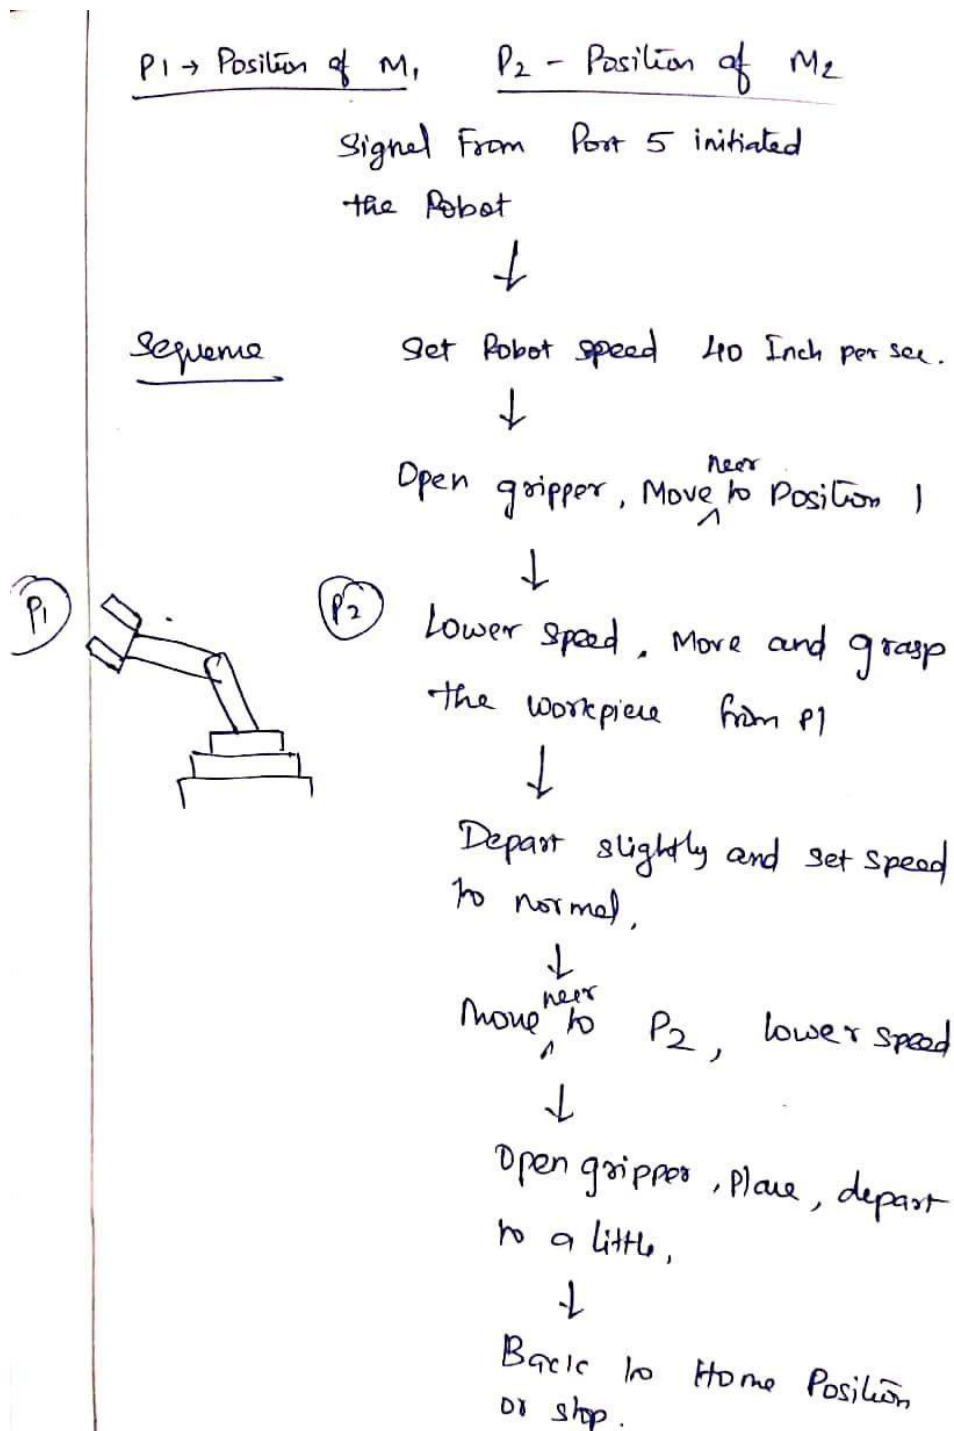 P1 → Position of M1    P2 - Position of M2
Signal From Port 5 initiated
the Robot
↓
Sequence    Set Robot speed 40 Inch per sec.
↓
Open gripper, Move near to Position 1
↓
P1    P2    Lower speed, Move and grasp
the workpiece from P1
↓
Depart slightly and set speed
to normal,
↓
Move near to P2, lower speed
↓
Open gripper, Place, depart
to a little,
↓
Back to Home Position
or stop.